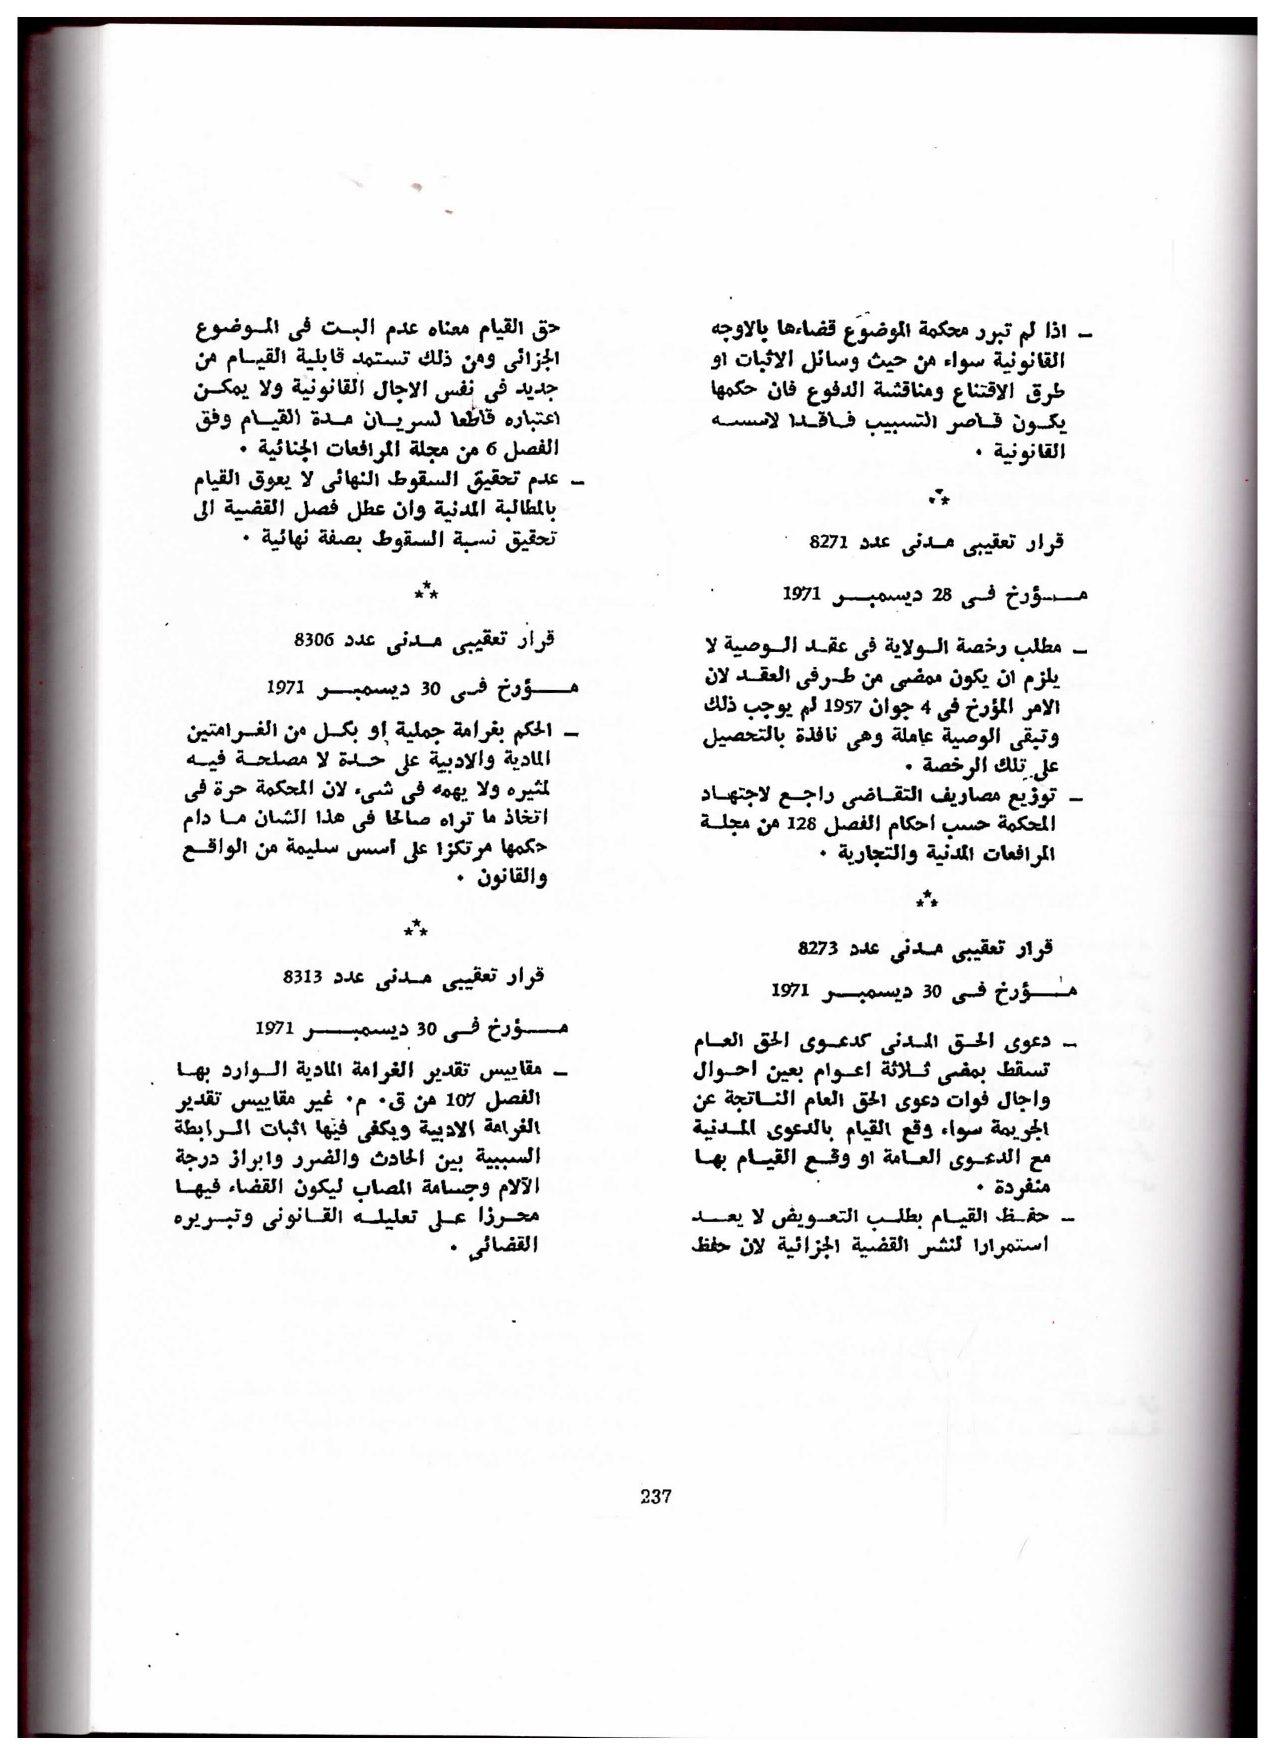 ـ اذا لم تبرر محكمة الموضوع قضاءها بالاوجه
القانونية سواء من حيث وسائل الاثبات او
طرق الاقتناع ومناقشة الدفوع فان حكمها
يكون قاصر التسبيب فاقدا لاسسه
القانونية ٠
***
قرار تعقيبى مدنى عدد 8271
مؤرخ فى 28 ديسمبر 1971
ـ مطلب رخصة الولاية فى عقد الوصية لا
يلزم ان يكون ممضى من طرفى العقد لان
الامر المؤرخ فى 4 جوان 1957 لم يوجب ذلك
وتبقى الوصية عاملة وهى نافذة بالتحصيل
على تلك الرخصة ٠
ـ توزيع مصاريف التقاضى راجع لاجتهاد
المحكمة حسب احكام الفصل 128 من مجلة
المرافعات المدنية والتجارية ٠
***
قرار تعقيبى مدنى عدد 8273
مؤرخ فى 30 ديسمبر 1971
ـ دعوى الحق المدنى كدعوى الحق العام
تسقط بمضى ثلاثة اعوام بعين احوال
واجال فوات دعوى الحق العام الناتجة عن
الجريمة سواء وقع القيام بالدعوى المدنية
مع الدعوى العامة او وقع القيام بها
منفردة ٠
ـ حفظ القيام بطلب التعويض لا يعد
استمرارا لنشر القضية الجزائية لان حفظ
حق القيام معناه عدم البت فى الموضوع
الجزائى ومن ذلك تستمد قابلية القيام من
جديد فى نفس الاجال القانونية ولا يمكن
اعتباره قاطعا لسريان مدة القيام وفق
الفصل 6 من مجلة المرافعات الجنائية ٠
ـ عدم تحقيق السقوط النهائى لا يعوق القيام
بالمطالبة المدنية وان عطل فصل القضية الى
تحقيق نسبة السقوط بصفة نهائية ٠
***
قرار تعقيبى مدنى عدد 8306
مؤرخ فى 30 ديسمبر 1971
ـ الحكم بغرامة جملية او بكل من الغرامتين
المادية والادبية على حدة لا مصلحة فيه
لمثيره ولا يهمه فى شىء لان المحكمة حرة فى
اتخاذ ما تراه صالحا فى هذا الشان ما دام
حكمها مرتكزا على اسس سليمة من الواقع
والقانون ٠
***
قرار تعقيبى مدنى عدد 8313
مؤرخ فى 30 ديسمبر 1971
ـ مقاييس تقدير الغرامة المادية الوارد بها
الفصل 107 من ق٠ م٠ غير مقاييس تقدير
الغرامة الادبية ويكفى فيها اثبات الرابطة
السببية بين الحادث والضرر وابراز درجة
الآلام وجسامة المصاب ليكون القضاء فيها
محرزا على تعليله القانونى وتبريره
القضائى ٠
237